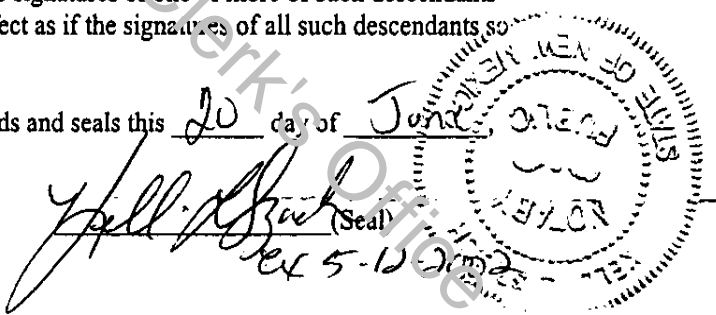 e signatures of one or more of such descendants
fect as if the signatures of all such descendants so
ds and seals this 20 day of June,
(Seal)
ex 5-12-2002
STATE OF NEW MEXICO
NOTARY PUBLIC
Clerk's Office